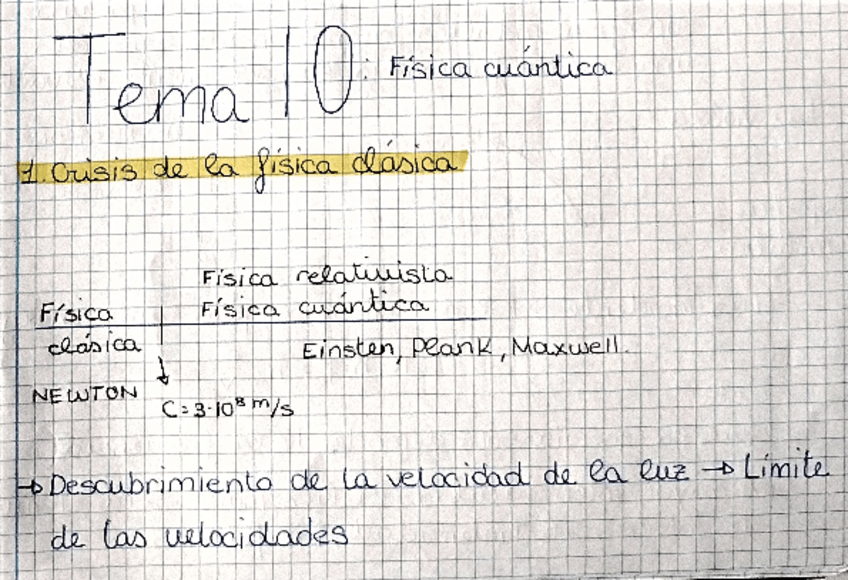 Tema 10: Física cuántica
1. Crisis de la física clásica
Física relativista
Física | Física cuántica
clásica Einsten, Plank, Maxwell.
NEWTON
C = 3·10⁸ m/s
→ Descubrimiento de la velocidad de la luz → Límite
de las velocidades